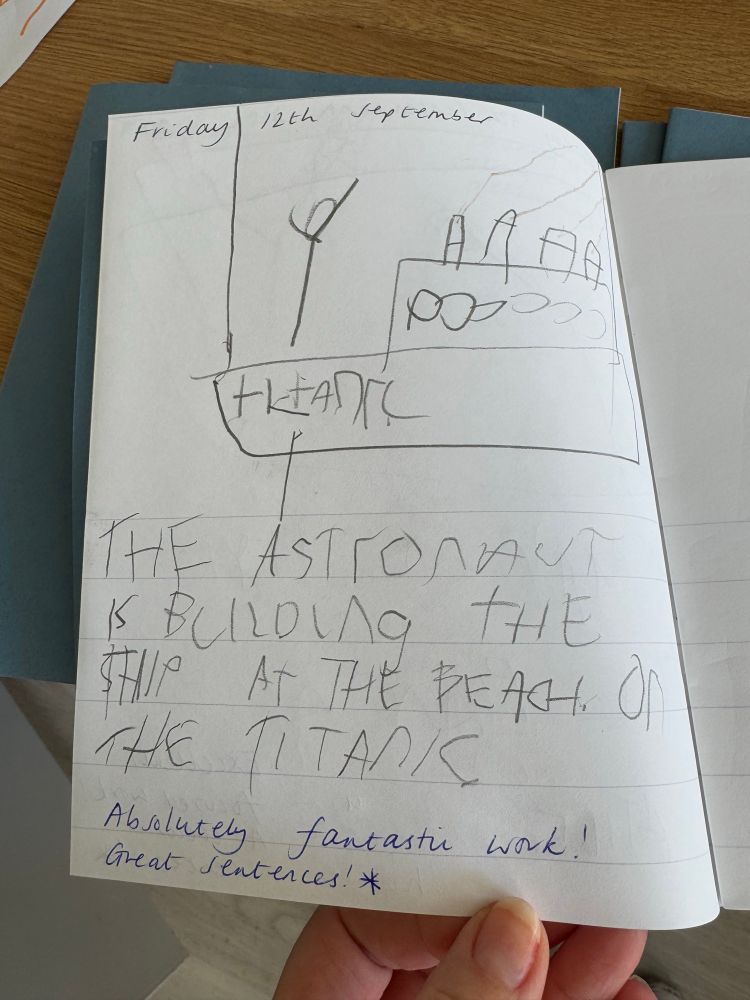 Friday 12th September
tITANIC
THE ASTRONAUT
IS BUILDING THE
SHIP AT THE BEACH. ON
THE TITANIC
Absolutely fantastic work!
Great sentences!*